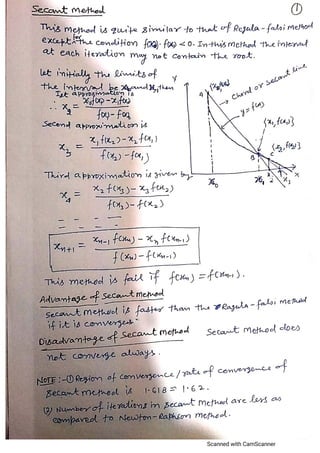 Secant Method
①
This method is quite similar to that of Regula-falsi method
except the condition f(x₁)·f(x₂) < 0. In this method the interval
for
at each iteration may not contain the root.
Let initially the limits of
the interval be x₀ and x₁, then
Ist approximation is
∴ x₂ = x₀f(x₁) - x₁f(x₀) / f(x₁) - f(x₀)
Second approximation is
x₃ = x₁f(x₂) - x₂f(x₁) / f(x₂) - f(x₁)
Third approximation is given by
x₄ = x₂f(x₃) - x₃f(x₂) / f(x₃) - f(x₂)
xₙ₊₁ = xₙ₋₁ f(xₙ) - xₙ f(xₙ₋₁) / f(xₙ) - f(xₙ₋₁)
Y
A
Chord or secant line
y = f(x)
{x₁, f(x₁)}
B
C
X
x₀
This method is fail if f(xₙ) = f(xₙ₋₁).
Advantage of Secant method
Secant method is faster than the Regula-falsi method
if it is converges.
Disadvantage of Secant method Secant method does
not converge always.
NOTE:-① Region of convergence / rate of convergence of
Secant method is 1.618 = 1.62.
(2) Number of iterations in secant method are less as
compared to Newton-Raphson method.
Scanned with CamScanner